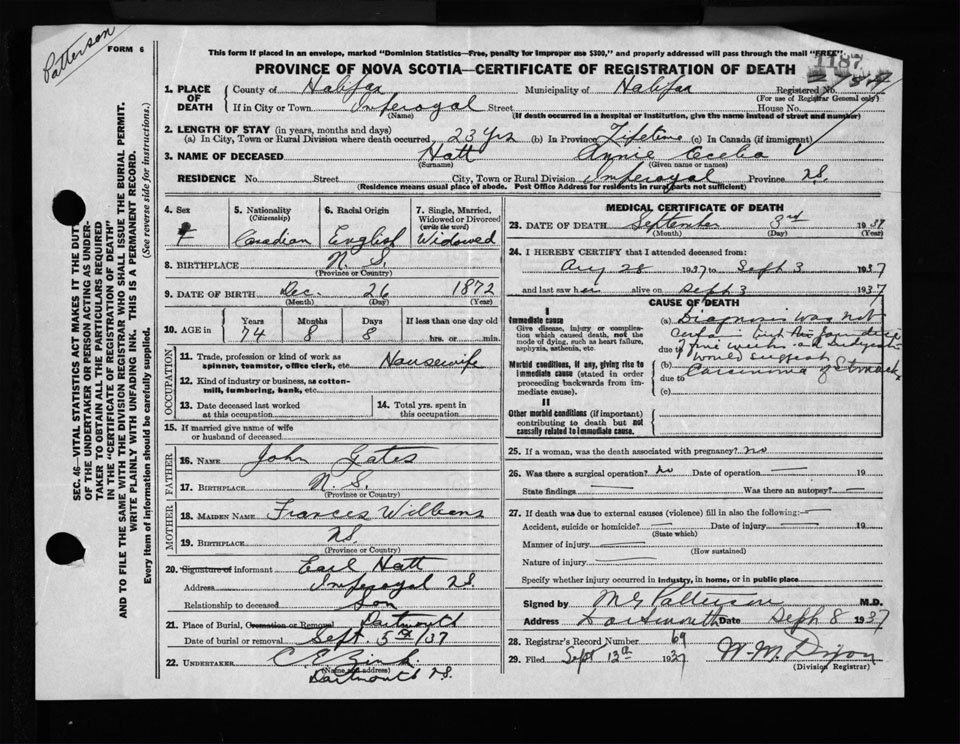 Patterson
FORM 6
This form if placed in an envelope, marked "Dominion Statistics—Free, penalty for improper use $300," and properly addressed will pass through the mail "FREE"
1187
PROVINCE OF NOVA SCOTIA—CERTIFICATE OF REGISTRATION OF DEATH
1. PLACE OF DEATH County of Halifax Municipality of Halifax Registered No.
(For use of Registrar General only)
If in City or Town Imperoyal Street House No.
(Name) (If death occurred in a hospital or institution, give the name instead of street and number)
2. LENGTH OF STAY (in years, months and days)
(a) In City, Town or Rural Division where death occurred 23 yrs (b) In Province Lifetime (c) In Canada (if immigrant)
3. NAME OF DECEASED Hatt Annie Cecelia
(Surname) (Given name or names)
RESIDENCE No. Street City, Town or Rural Division Imperoyal Province N.S.
(Residence means usual place of abode. Post Office Address for residents in rural parts not sufficient)
4. Sex F
5. Nationality (Citizenship) Canadian
6. Racial Origin English
7. Single, Married, Widowed or Divorced (write the word) Widowed
8. BIRTHPLACE N. S.
(Province or Country)
9. DATE OF BIRTH Dec. 26 1872
(Month) (Day) (Year)
10. AGE in Years Months Days If less than one day old
74 8 8 hrs. or min.
OCCUPATION
11. Trade, profession or kind of work as spinner, teamster, office clerk, etc. Housewife
12. Kind of industry or business, as cotton-mill, lumbering, bank, etc.
13. Date deceased last worked at this occupation
14. Total yrs. spent in this occupation
15. If married give name of wife or husband of deceased
FATHER
16. NAME John Gates
17. BIRTHPLACE N. S.
(Province or Country)
MOTHER
18. MAIDEN NAME Frances Williams
19. BIRTHPLACE N.S.
(Province or Country)
20. Signature of informant Earl Hatt
Address Imperoyal N.S.
Relationship to deceased Son
21. Place of Burial, Cremation or Removal Dartmouth
Date of burial or removal Sept. 5th/37
22. UNDERTAKER C. E. Zink
(Name and address)
Dartmouth N.S.
MEDICAL CERTIFICATE OF DEATH
23. DATE OF DEATH September 3rd 1937
(Month) (Day) (Year)
24. I HEREBY CERTIFY that I attended deceased from:
Aug 28 1937 to Sept 3 1937
and last saw her alive on Sept 3 1937
CAUSE OF DEATH
I
Immediate cause
Give disease, injury or complication which caused death, not the mode of dying, such as heart failure, asphyxia, asthenia, etc.
(a) Diagnosis was not
due to
Morbid conditions, if any, giving rise to immediate cause (stated in order proceeding backwards from immediate cause).
(b) would suggest
due to Carcinoma of Stomach
(c)
II
Other morbid conditions (if important) contributing to death but not causally related to immediate cause.
25. If a woman, was the death associated with pregnancy? no
26. Was there a surgical operation? no Date of operation — 19
State findings — Was there an autopsy? —
27. If death was due to external causes (violence) fill in also the following:—
Accident, suicide or homicide? — Date of injury — 19
(State which)
Manner of injury
(How sustained)
Nature of injury
Specify whether injury occurred in industry, in home, or in public place
Signed by M G Patterson M.D.
Address Dartmouth Date Sept 8 1937
28. Registrar's Record Number 69
29. Filed Sept 13th 1937 W. M. Dixon
(Division Registrar)
SEC. 46—VITAL STATISTICS ACT MAKES IT THE DUTY
OF THE UNDERTAKER OR PERSON ACTING AS UNDER-
TAKER TO OBTAIN ALL THE PARTICULARS REQUIRED
IN THE "CERTIFICATE OF REGISTRATION OF DEATH"
AND TO FILE THE SAME WITH THE DIVISION REGISTRAR WHO SHALL ISSUE THE BURIAL PERMIT.
WRITE PLAINLY WITH UNFADING INK. THIS IS A PERMANENT RECORD.
Every item of information should be carefully supplied. (See reverse side for instructions.)